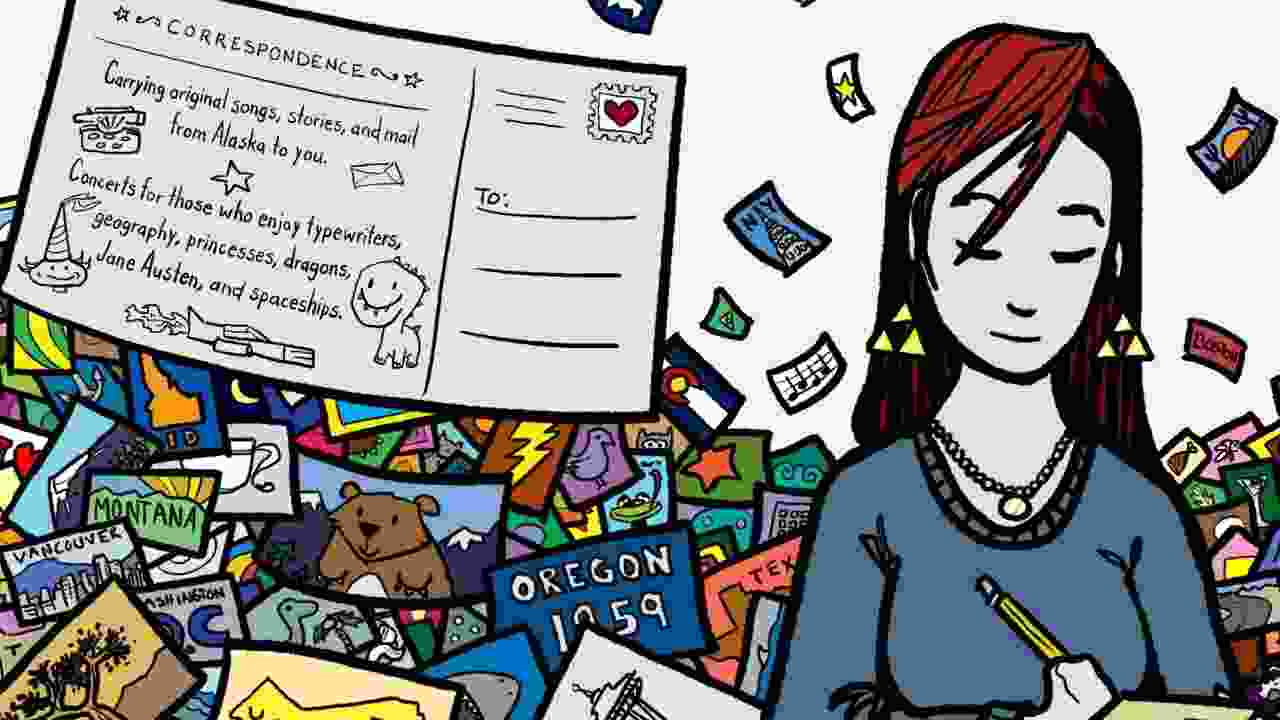 CORRESPONDENCE
Carrying original songs, stories, and mail
from Alaska to you.
Concerts for those who enjoy typewriters,
geography, princesses, dragons,
Jane Austen, and spaceships.
TO:
NY
ID
MONTANA
VANCOUVER
OREGON
1959
TEX